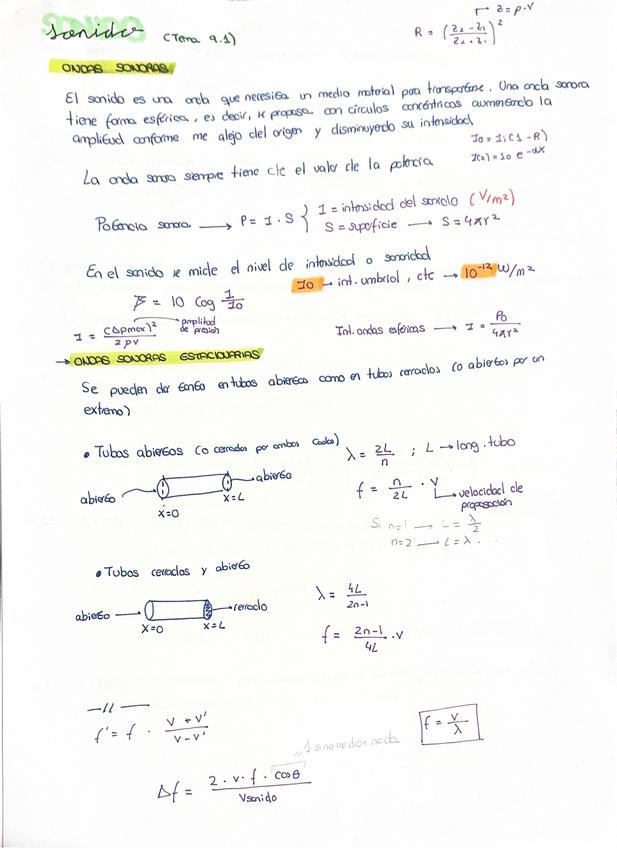 Sonido (Tema 9.1)
z = ρ·v
R = (z₂ - z₁ / z₂ + z₁)²
ONDAS SONORAS
El sonido es una onda que necesita un medio material para transportarse. Una onda sonora
tiene forma esférica, es decir, se propaga con círculos concéntricos aumentando la
amplitud conforme me alejo del origen y disminuyendo su intensidad
I0 = Ii(1 - R)
I(x) = I0 e^-αx
La onda sonora siempre tiene cte el valor de la potencia
Potencia sonora → P = I · S { I = intensidad del sonido (V/m²)
S = superficie → S = 4πr²
En el sonido se mide el nivel de intensidad o sonoridad
I0 → int. umbral, cte → 10^-12 W/m²
β = 10 log I/I0
I = (Δpmax)² / 2ρv
amplitud
de presión
Int. ondas esféricas → I = P0 / 4πr²
→ ONDAS SONORAS ESTACIONARIAS
Se pueden dar tanto en tubos abiertos como en tubos cerrados (o abiertos por un
extremo)
• Tubos abiertos (o cerrados por ambos lados)
λ = 2L/n ; L → long. tubo
abierto
abierto
x=0
x=L
f = n/2L · v
velocidad de
propagación
Si n=1 → L = λ/2
n=2 → L = λ.
• Tubos cerrados y abierto
abierto
cerrado
x=0
x=L
λ = 4L / 2n-1
f = 2n-1 / 4L · v
—11—
f' = f · v + v' / v - v'
1 si no me dicen nada
f = v/λ
Δf = 2·v·f·cosθ / Vsonido